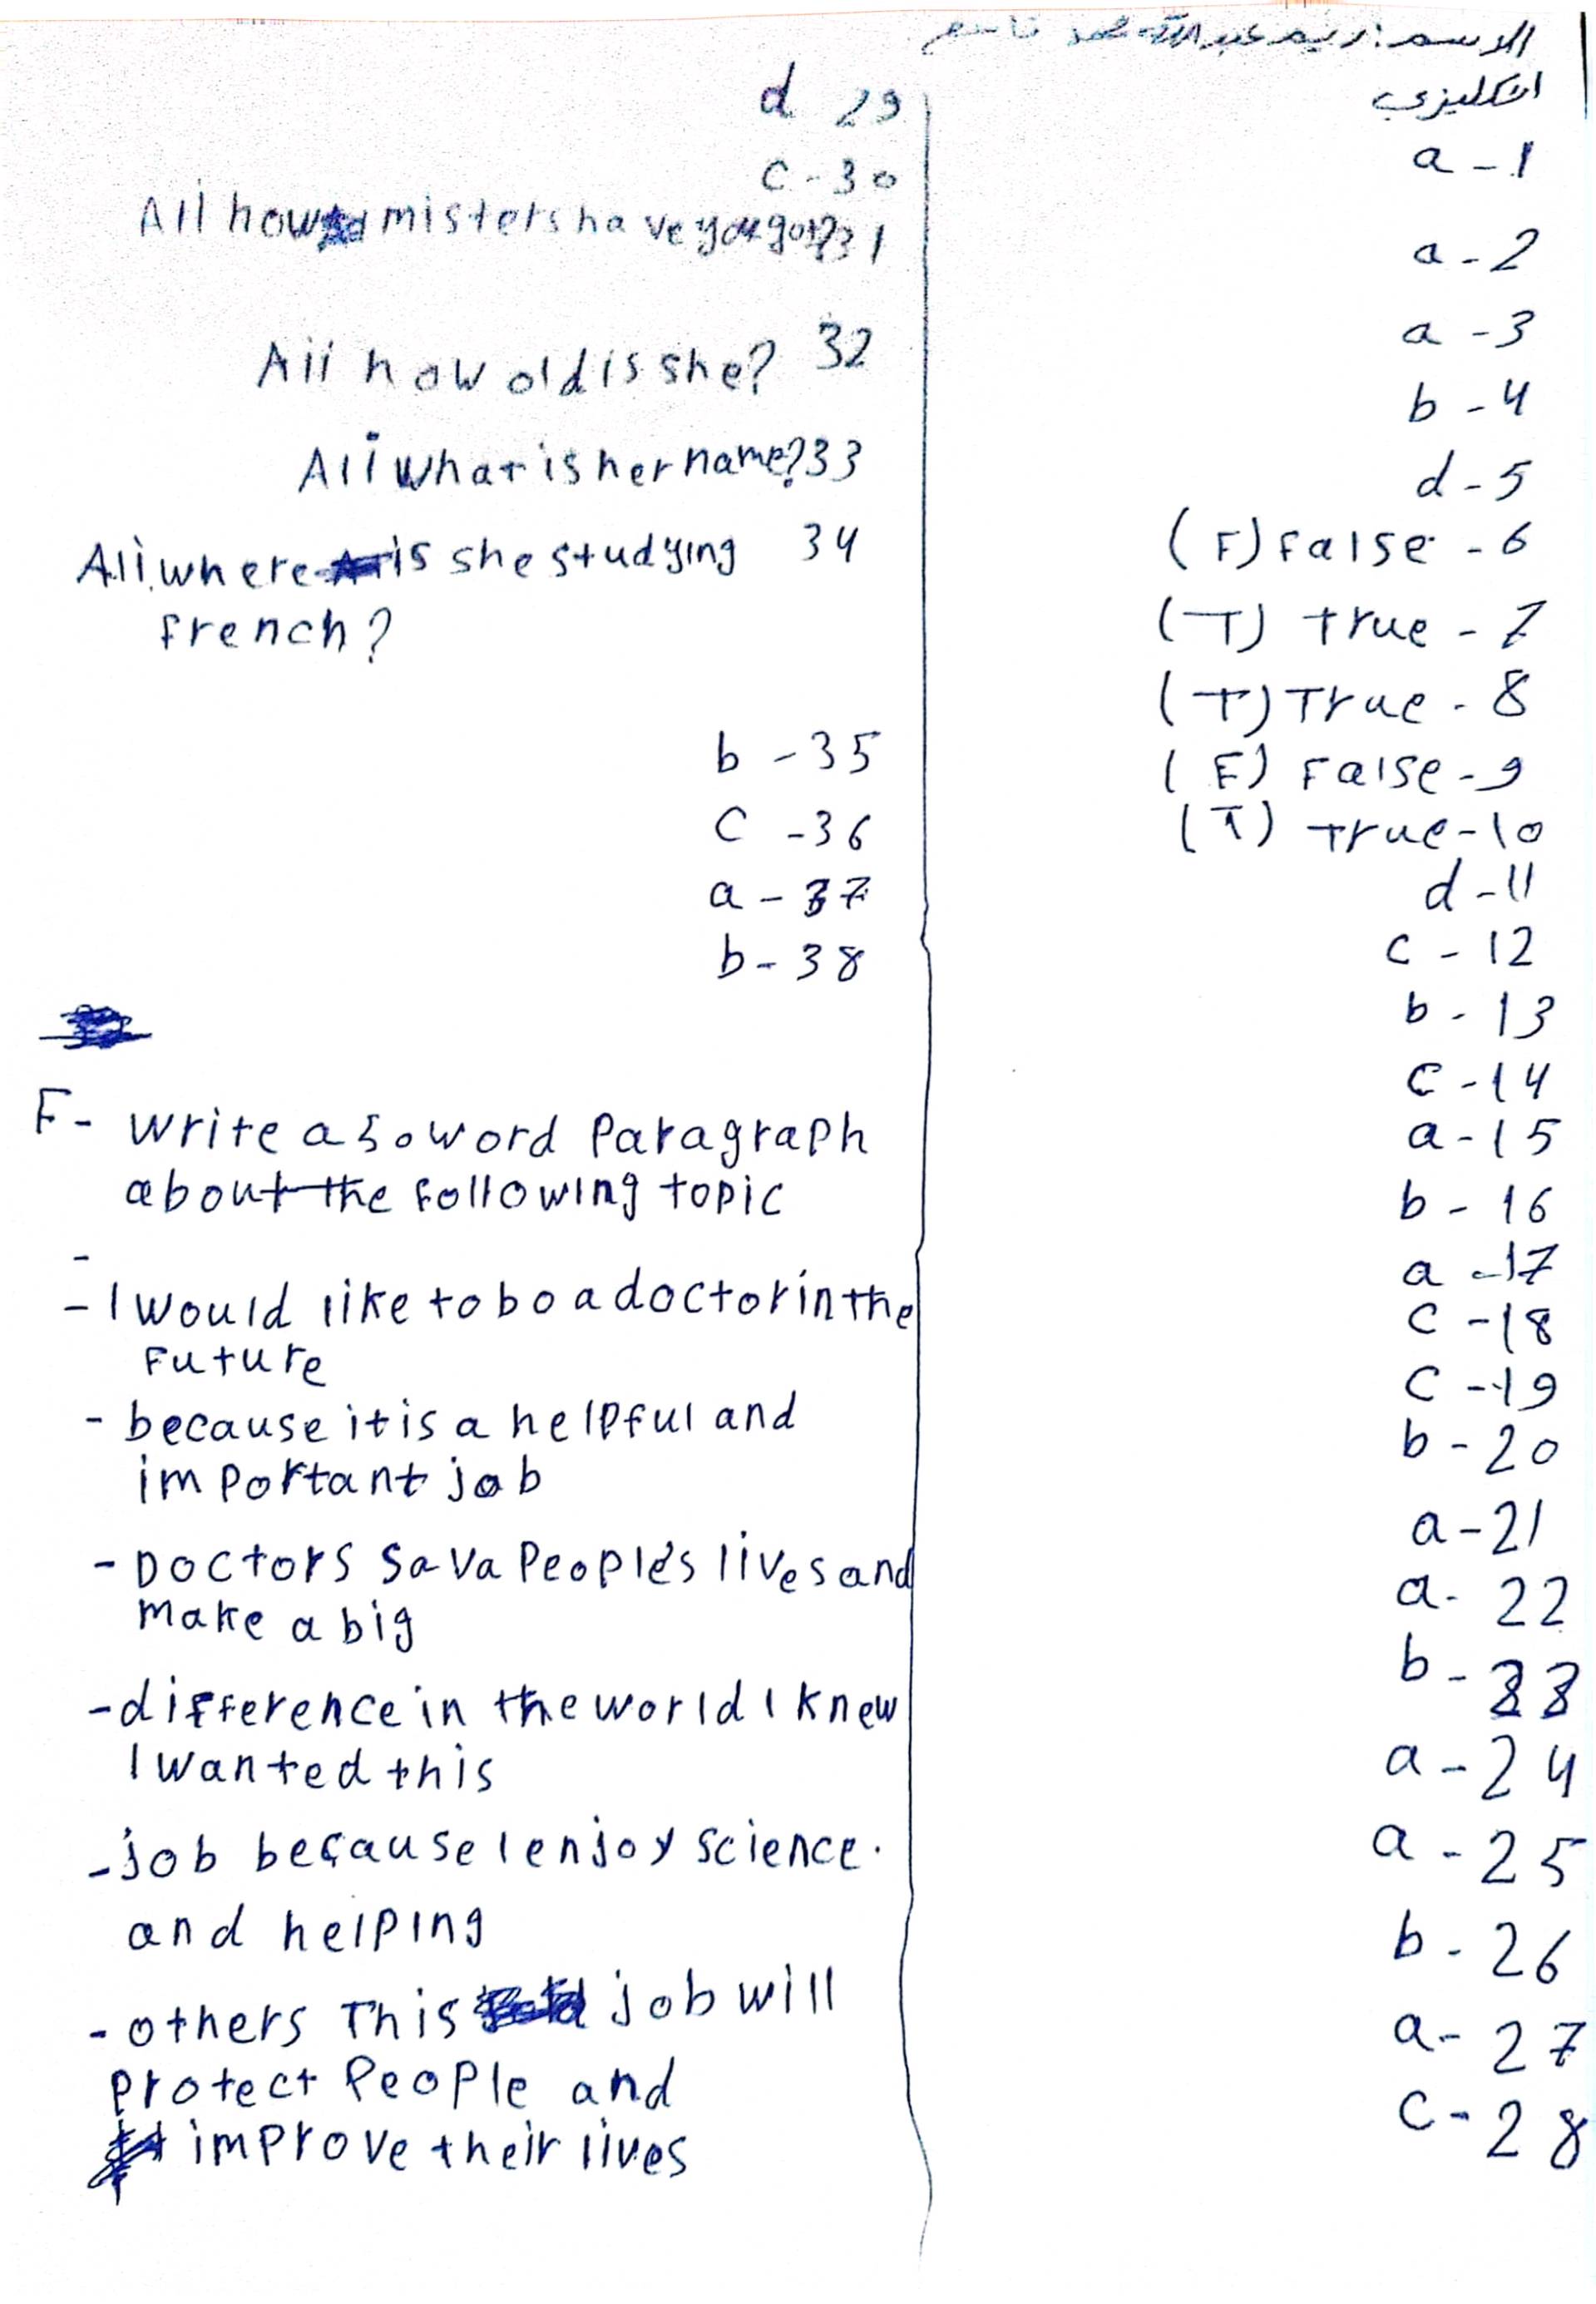 الاسم: ريم عبدالله محمد قاسم
انكليزي
a - 1
a - 2
a - 3
b - 4
d - 5
(F) False - 6
(T) true - 7
(T) True - 8
(F) False - 9
(T) true - 10
d - 11
c - 12
b - 13
c - 14
a - 15
b - 16
a - 17
c - 18
c - 19
b - 20
a - 21
a - 22
b - 23
a - 24
a - 25
b - 26
a - 27
c - 28
d 29
c - 30
Ali how misters have you got? 31
Ali how old is she? 32
Ali what is her name? 33
Ali where is she studying 34
french?
b - 35
c - 36
a - 37
b - 38
F- write a 50 word Paragraph
about the following topic
- I would like to bo a doctor in the
Future
- because it is a helpful and
important job
- Doctors sava People's lives and
make a big
- difference in the world I knew
I wanted this
- job because I enjoy science.
and helping
- others This job will
protect People and
improve their lives